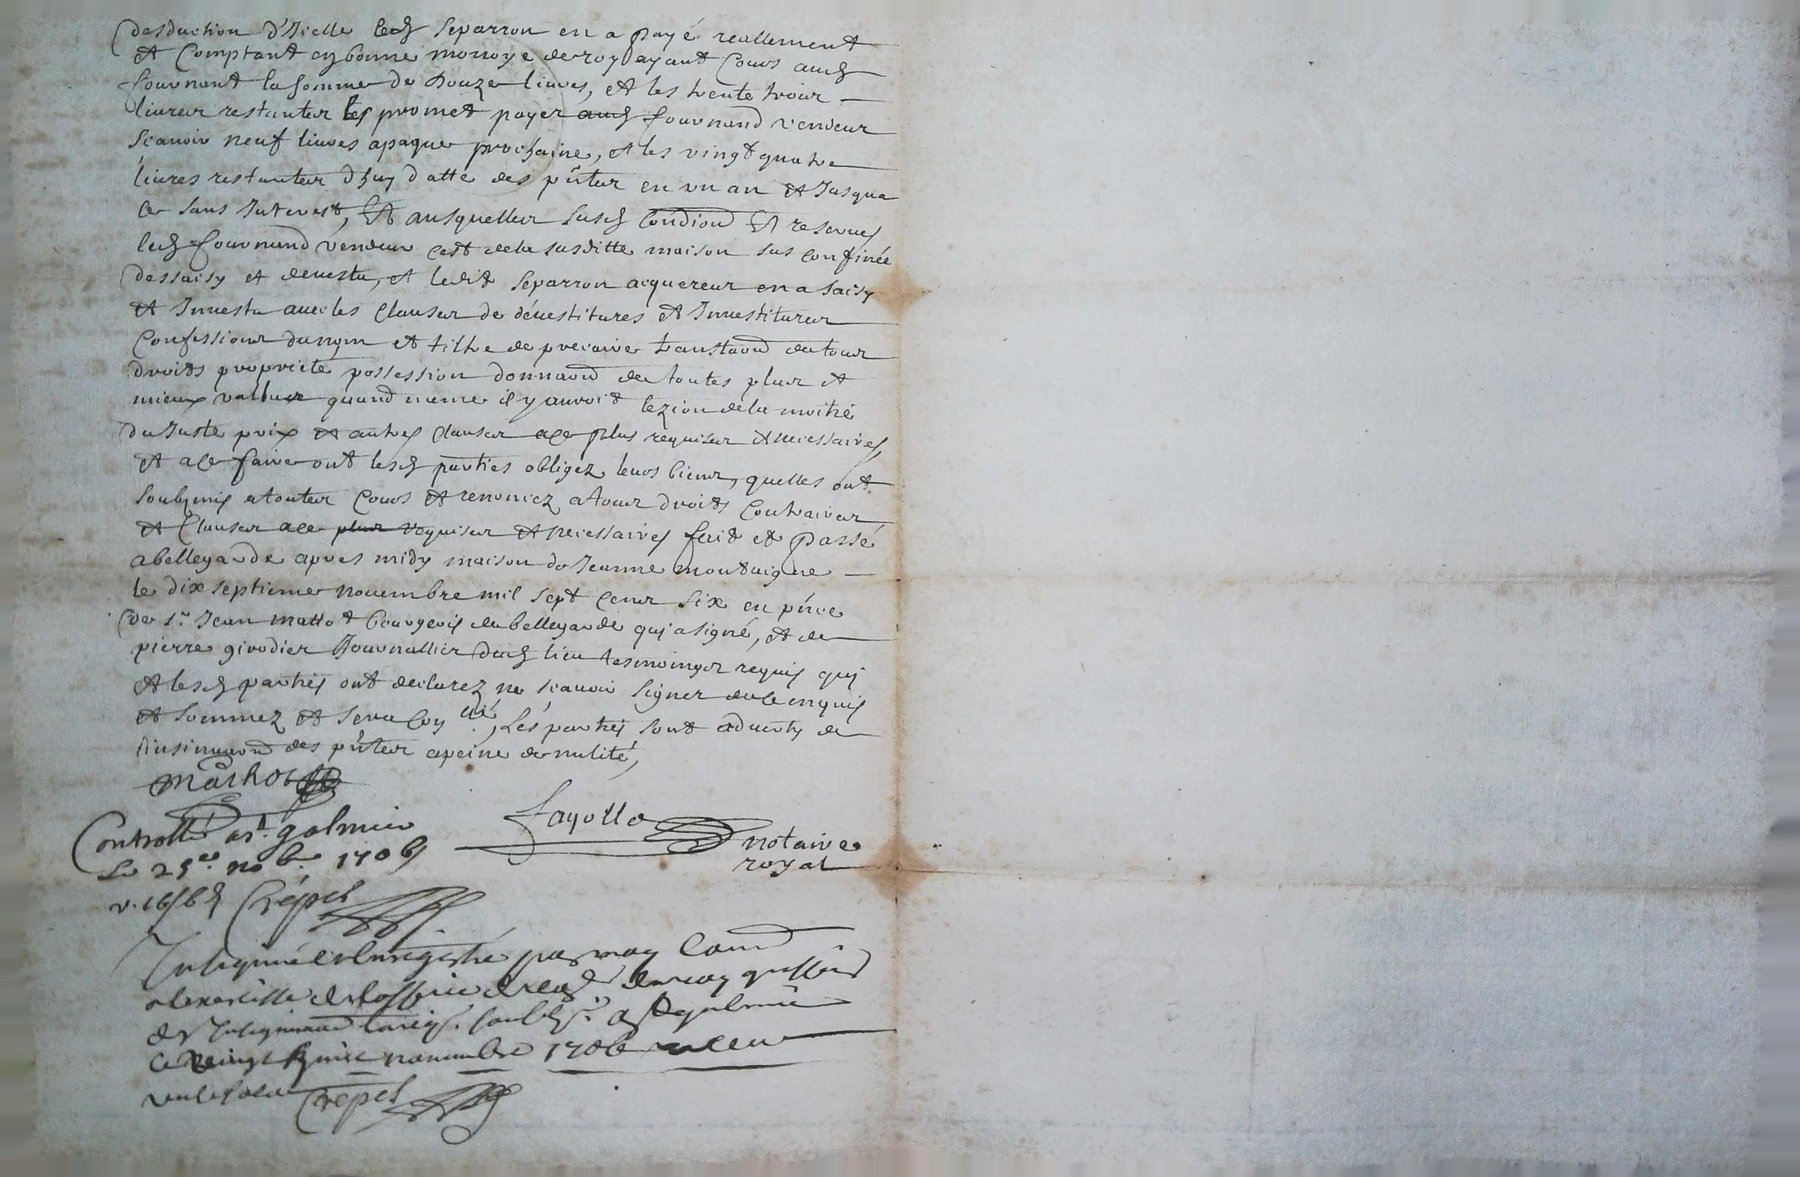 desduction d'Icelle led Separron en a payé reallement
et Comptant en bonne monoye de roy ayant Cours aud
fournand la somme de douze livres, et les trente trois
livres restantes les promet payer aud fournand vendeur
scavoir neuf livres apaques prochaine, et les vingt quatre
livres restantes d'huy datte des pntes en un an et Jusqua
ce sans Interest, et ausquelles susd Condiond et reserves
led fournand vendeur cest de la susditte maison sus confinée
dessaisy et devestu, et ledit Separron acquereur en a saisy
et Investu avec les Clauses de dévestitures et Investitures
Confessions du nom et tiltre de precaire transtaond de tous
droits proprieté possession donnaond de toutes plus et
mieux vallues quand meme il y auroit lezion de la moitié
du Juste prix et autres Clauses ace plus requises et necessaires
et ace faire ont lesd parties obligez leurs biens, quelles ont
soubzmis a toutes Cours et renoncez a tous droits Contraires
et Clauses ace plus requises et necessaires fait et passé
a bellegarde apres midy maison de Jeanne montaigne
le dix septieme novembre mil sept cens six en pnce
de sr. Jean mattot bourgeois de bellegarde qui a signé, et de
pierre girodier Journallier dud lieu tesmoings requis qui
et lesd parties ont declarez ne scavoir signer de ce enquis
et sommez et sera Con lé, Les parties sont adverty de
linsinuaond des pntes apeine de nulité,
Mathot
Controllé a st. galmier
Le 25e. nobe. 1706
Crépet
fayolle
notaire
royal
Insignué et Enregistré par moy Comd
a lexercisse de loffice de greffier
des Insignuaond a st galmier
ce vingt cinq novembre 1706
Crepet